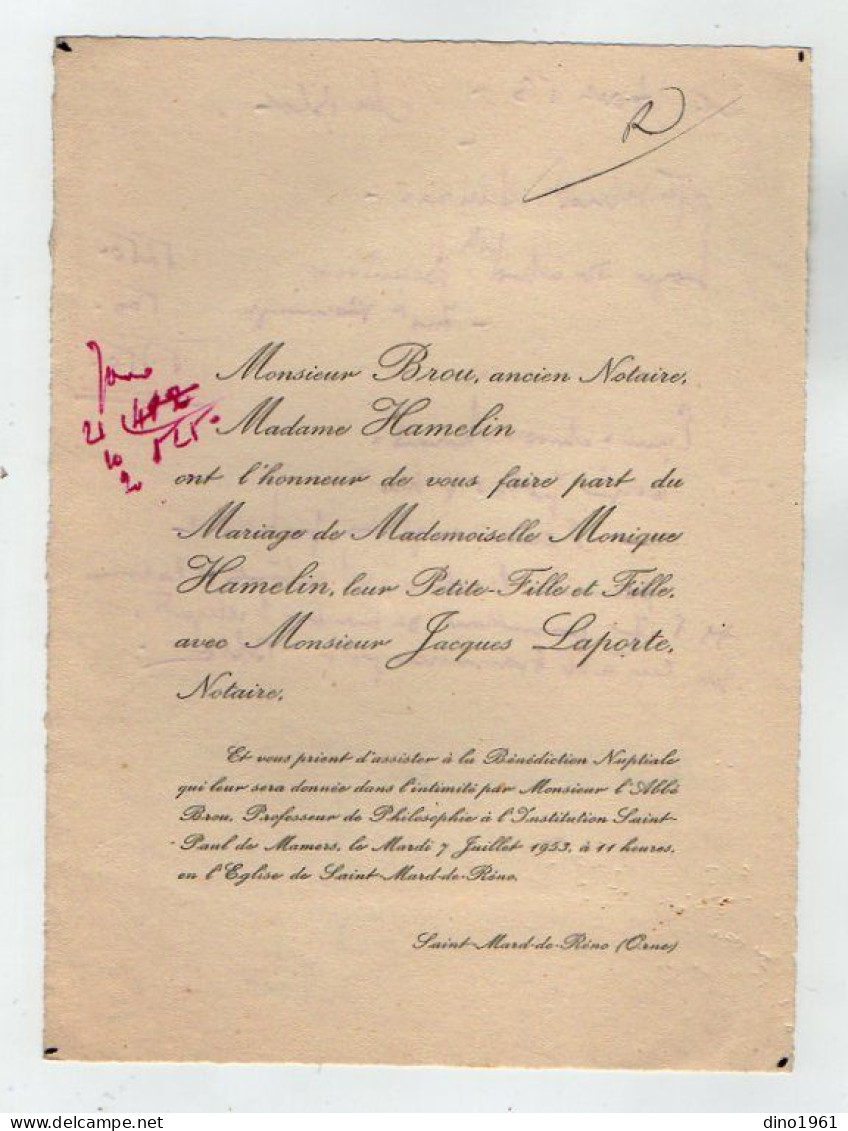 R
Monsieur Brou, ancien Notaire,
Madame Hamelin
ont l'honneur de vous faire part du
Mariage de Mademoiselle Monique
Hamelin, leur Petite-Fille et Fille,
avec Monsieur Jacques Laporte,
Notaire.
21
10
20
525
Et vous prient d'assister à la Bénédiction Nuptiale
qui leur sera donnée dans l'intimité par Monsieur l'Abbé
Brou, Professeur de Philosophie à l'Institution Saint-
Paul de Mamers, le Mardi 7 Juillet 1953, à 11 heures,
en l'Eglise de Saint-Mard-de-Réno.
Saint-Mard-de-Réno (Orne)
dino1961